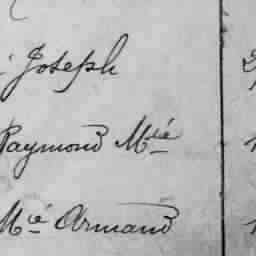 Joseph
Raymond Mié
Mié Armand